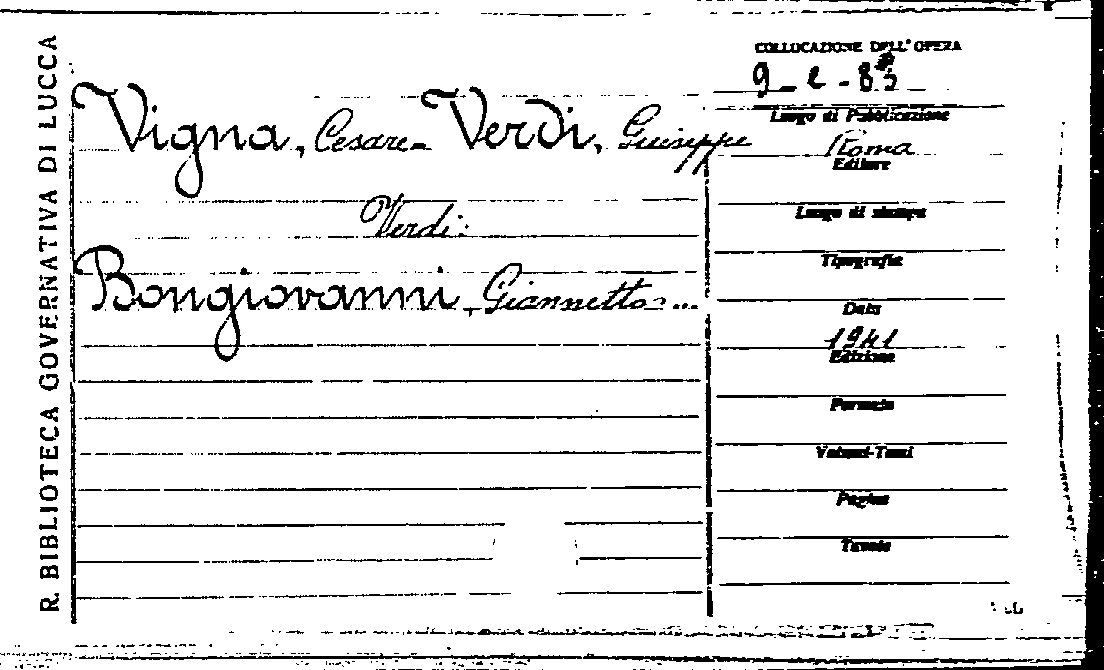 R. BIBLIOTECA GOVERNATIVA DI LUCCA
Vigna, Cesare - Verdi, Giuseppe
Verdi:
Bongiovanni, Giannetto ...
COLLOCAZIONE DELL'OPERA
Luogo di Pubblicazione
Roma
Editore
Luogo di stampa
Tipografia
Data
1941
Edizione
Formato
Volumi-Tomi
Pagine
Tavole